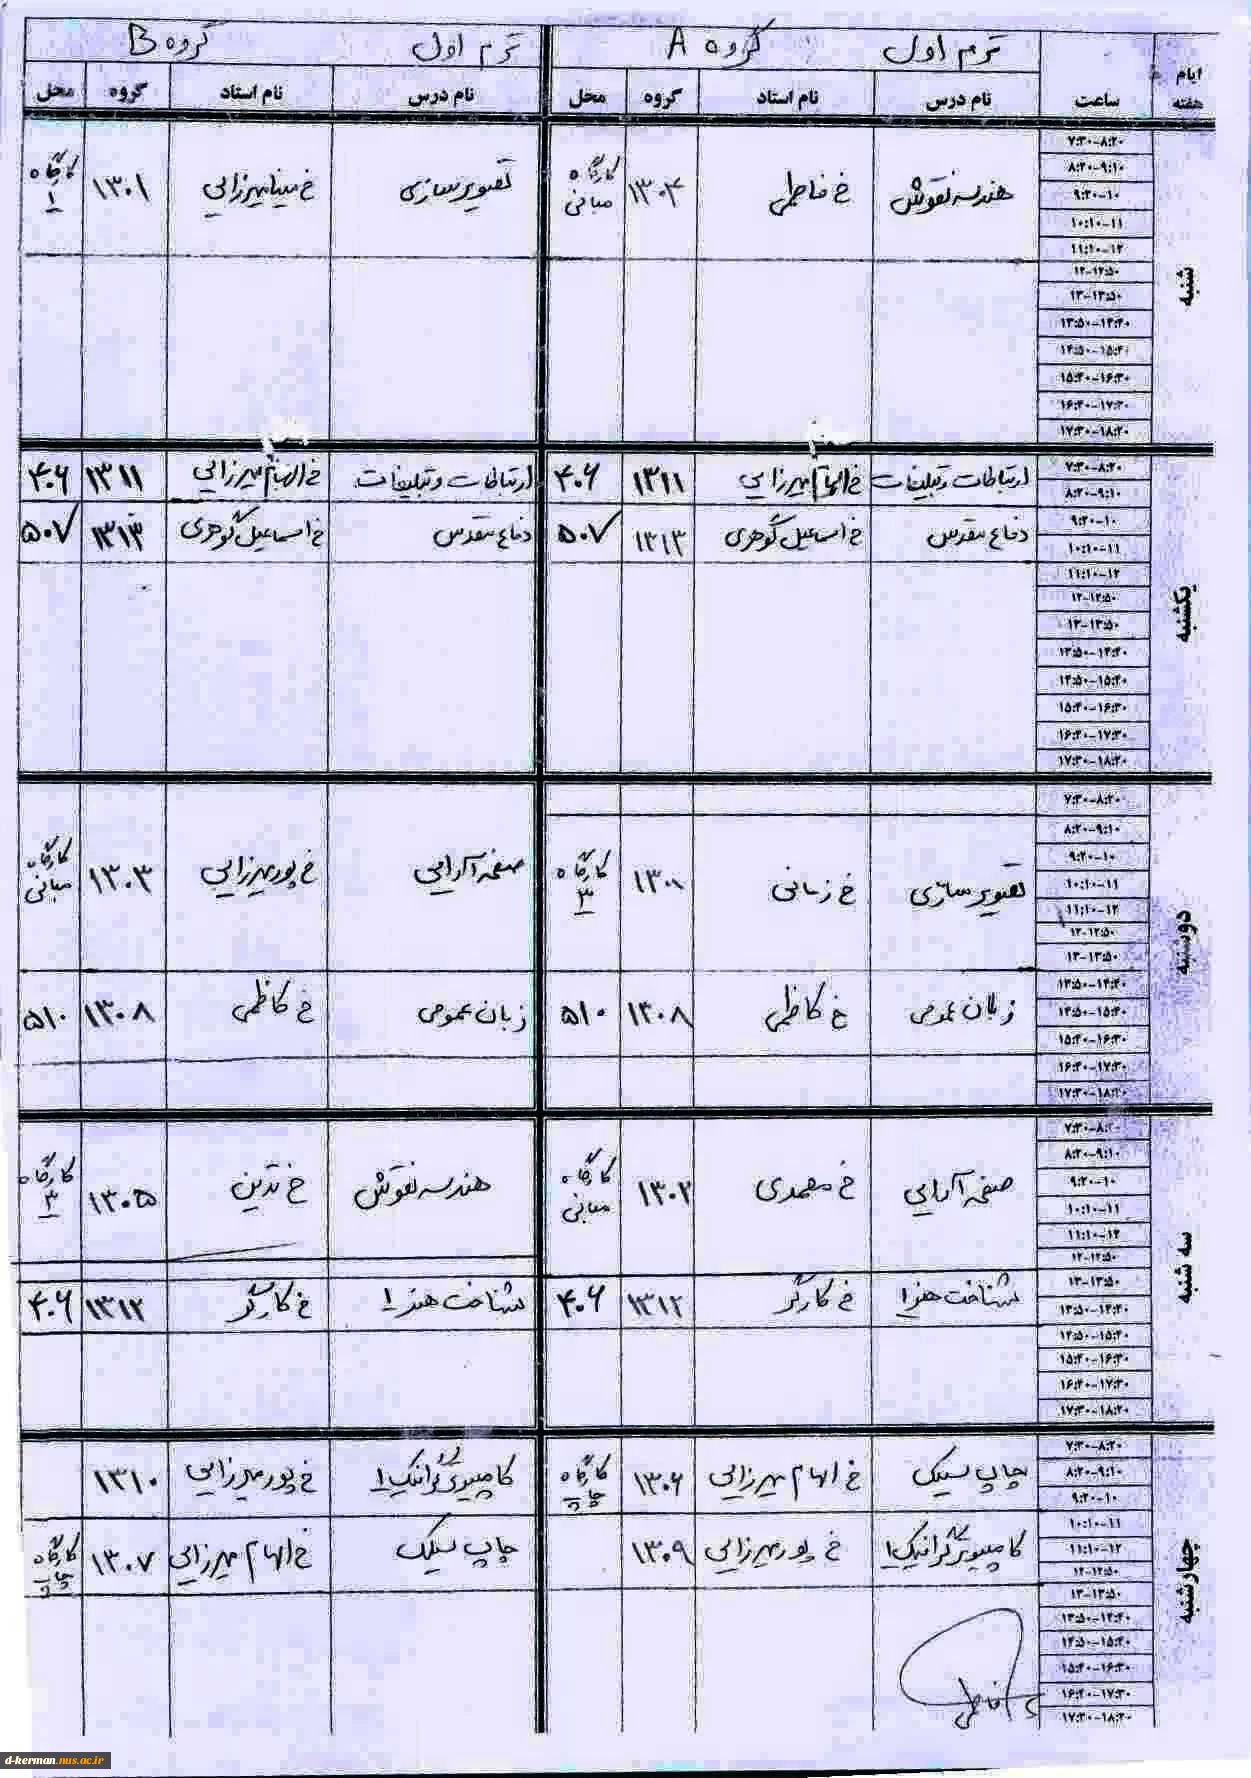 ترم اول گروه A ترم اول گروه B
ایام هفته ساعت نام درس نام استاد گروه محل نام درس نام استاد گروه محل
شنبه
۷:۳۰-۸:۲۰
۸:۲۰-۹:۱۰
۹:۲۰-۱۰
۱۰:۱۰-۱۱
۱۱:۱۰-۱۲
۱۲-۱۲:۵۰
۱۳-۱۳:۵۰
۱۳:۵۰-۱۴:۴۰
۱۴:۵۰-۱۵:۴۰
۱۵:۴۰-۱۶:۳۰
۱۶:۴۰-۱۷:۳۰
۱۷:۳۰-۱۸:۲۰
هندسه نقوش خ فاطمی ۱۳۰۴ کارگاه مبانی
تصویرسازی خ مینا میرزایی ۱۳۰۱ کارگاه ۱
یکشنبه
۷:۳۰-۸:۲۰
۸:۲۰-۹:۱۰
۹:۲۰-۱۰
۱۰:۱۰-۱۱
۱۱:۱۰-۱۲
۱۲-۱۲:۵۰
۱۳-۱۳:۵۰
۱۳:۵۰-۱۴:۴۰
۱۴:۵۰-۱۵:۴۰
۱۵:۴۰-۱۶:۳۰
۱۶:۴۰-۱۷:۳۰
۱۷:۳۰-۱۸:۲۰
ارتباطات و تبلیغات خ الهام میرزایی ۱۳۱۱ ۴۰۶ ارتباطات و تبلیغات خ الهام میرزایی ۱۳۱۱ ۴۰۶
دفاع مقدس خ اسماعیل گوهری ۱۳۱۳ ۵۰۷ دفاع مقدس خ اسماعیل گوهری ۱۳۱۳ ۵۰۷
دوشنبه
۷:۳۰-۸:۲۰
۸:۲۰-۹:۱۰
۹:۲۰-۱۰
۱۰:۱۰-۱۱
۱۱:۱۰-۱۲
۱۲-۱۲:۵۰
۱۳-۱۳:۵۰
۱۳:۵۰-۱۴:۴۰
۱۴:۵۰-۱۵:۴۰
۱۵:۴۰-۱۶:۳۰
۱۶:۴۰-۱۷:۳۰
۱۷:۳۰-۱۸:۲۰
تصویرسازی خ زمانی کارگاه ۳
صفحه آرایی خ پورمیرزایی ۱۳۰۳ کارگاه مبانی
زبان عمومی خ کاظمی ۱۳۰۸ ۵۱۰ زبان عمومی خ کاظمی ۱۳۰۸ ۵۱۰
سه شنبه
۷:۳۰-۸:۲۰
۸:۲۰-۹:۱۰
۹:۲۰-۱۰
۱۰:۱۰-۱۱
۱۱:۱۰-۱۲
۱۲-۱۲:۵۰
۱۳-۱۳:۵۰
۱۳:۵۰-۱۴:۴۰
۱۴:۵۰-۱۵:۴۰
۱۵:۴۰-۱۶:۳۰
۱۶:۴۰-۱۷:۳۰
۱۷:۳۰-۱۸:۲۰
صفحه آرایی خ محمدی ۱۳۰۲ کارگاه مبانی
هندسه نقوش خ تدین ۱۳۰۵ کارگاه ۳
شناخت هنر ۱ خ کارگر ۱۳۱۲ ۴۰۶ شناخت هنر ۱ خ کارگر ۱۳۱۲ ۴۰۶
چهارشنبه
۷:۳۰-۸:۲۰
۸:۲۰-۹:۱۰
۹:۲۰-۱۰
۱۰:۱۰-۱۱
۱۱:۱۰-۱۲
۱۲-۱۲:۵۰
۱۳-۱۳:۵۰
۱۳:۵۰-۱۴:۴۰
۱۴:۵۰-۱۵:۴۰
۱۵:۴۰-۱۶:۳۰
۱۶:۴۰-۱۷:۳۰
۱۷:۳۰-۱۸:۲۰
چاپ سیلک خ الهام میرزایی ۱۳۰۶ کارگاه چاپ کامپیوتر گرافیک ۱ خ پورمیرزایی ۱۳۱۰
کامپیوتر گرافیک ۱ خ پورمیرزایی ۱۳۰۹ چاپ سیلک خ الهام میرزایی ۱۳۰۷ کارگاه چاپ
فاطمی
d-kerman.nus.ac.ir